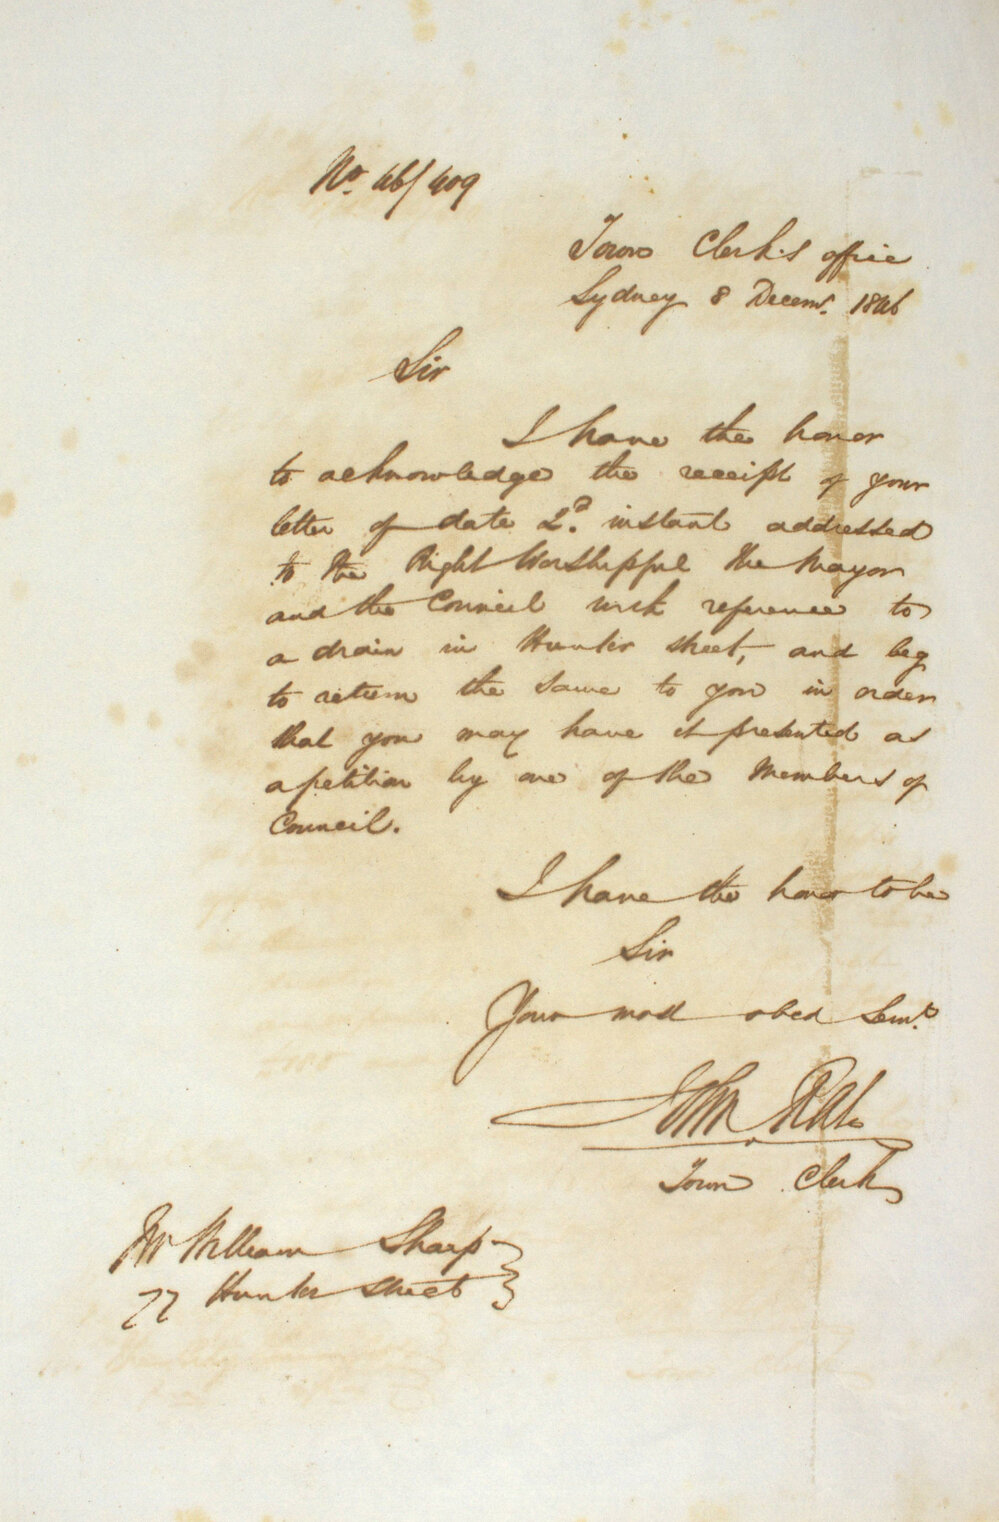 No. 46/409
Town Clerk's office
Sydney 8 Decemr. 1846
Sir
I have the honor
to acknowledge the receipt of your
letter of date 2d. instant addressed
to the Right Worshipful the Mayor
and the Council with reference to
a drain in Hunter Street, and beg
to return the same to you in order
that you may have it presented as
a petition by one of the Members of
Council.
I have the honor to be
Sir
Your most obed Servt.
John
Town Clerk
Mr William Sharp
77 Hunter Street